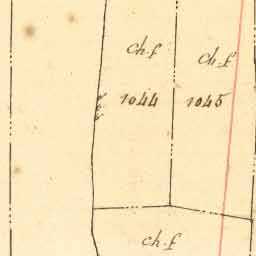 ch.f
ch.f
1044
1045
ch.f